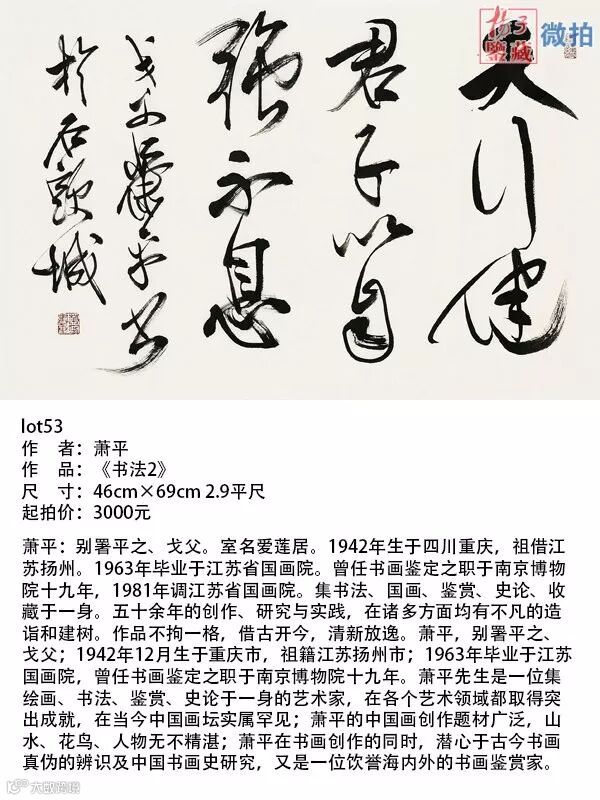 扬子
鉴藏
微拍
天行健
君子以自
强不息
戈父蕭平书
於石頭城
lot53
作 者：萧平
作 品：《书法2》
尺 寸：46cm×69cm 2.9平尺
起拍价：3000元
萧平：别署平之、戈父。室名爱莲居。1942年生于四川重庆，祖借江
苏扬州。1963年毕业于江苏省国画院。曾任书画鉴定之职于南京博物
院十九年，1981年调江苏省国画院。集书法、国画、鉴赏、史论、收
藏于一身。五十余年的创作、研究与实践，在诸多方面均有不凡的造
诣和建树。作品不拘一格，借古开今，清新放逸。萧平，别署平之、
戈父；1942年12月生于重庆市，祖籍江苏扬州市；1963年毕业于江苏
国画院，曾任书画鉴定之职于南京博物院十九年。萧平先生是一位集
绘画、书法、鉴赏、史论于一身的艺术家，在各个艺术领域都取得突
出成就，在当今中国画坛实属罕见；萧平的中国画创作题材广泛，山
水、花鸟、人物无不精湛；萧平在书画创作的同时，潜心于古今书画
真伪的辨识及中国书画史研究，又是一位饮誉海内外的书画鉴赏家。
大数跨境